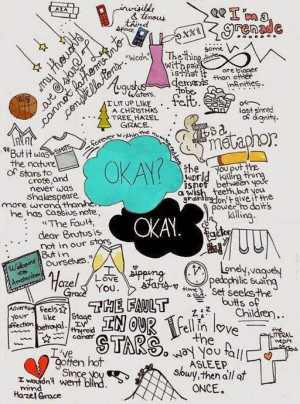 invisible
& tenuous
third
space
"I'm a
grenade
my thoughts
are stars I
cannot fathom into
constellations.
"Woah"
The thing
with pain
is that it
demands
to be
felt.
some
are bigger
than other
infinities.
Augustus
Waters.
I LIT UP LIKE
A CHRISTMAS
TREE, HAZEL
GRACE.
last shred
of dignity.
Forever within the numbered
It's a
metaphor.
"But it was
the nature
of stars to
cross, and
never was
Shakespeare
more wrong than when
he has Cassius note,
"The Fault,
dear Brutus is
not in our stars
But in
ourselves."
OKAY?
OKAY.
the
world
is not
a wish
granting
factory
you put the
killing thing
between your
teeth, but you
don't give it the
power to do its
killing.
Welcome
to
Amsterdam
Hazel
Grace
I
LOVE
YOU.
sipping
stars
Lonely, vaguely
pedophilic swing
set seeks the
butts of
Children..
Advertising
your
affection
Feels
like
betrayal.
Stage
IV
thyroid
cancer
THE FAULT
IN OUR
STARS.
z z z
I fell in love
the
way you fall
ASLEEP
slowy, then all at
ONCE.
the
LITERAL
HEART
OF
JESUS
I've
gotten hot
Since you
went blind.
I wouldn't
mind
Hazel Grace